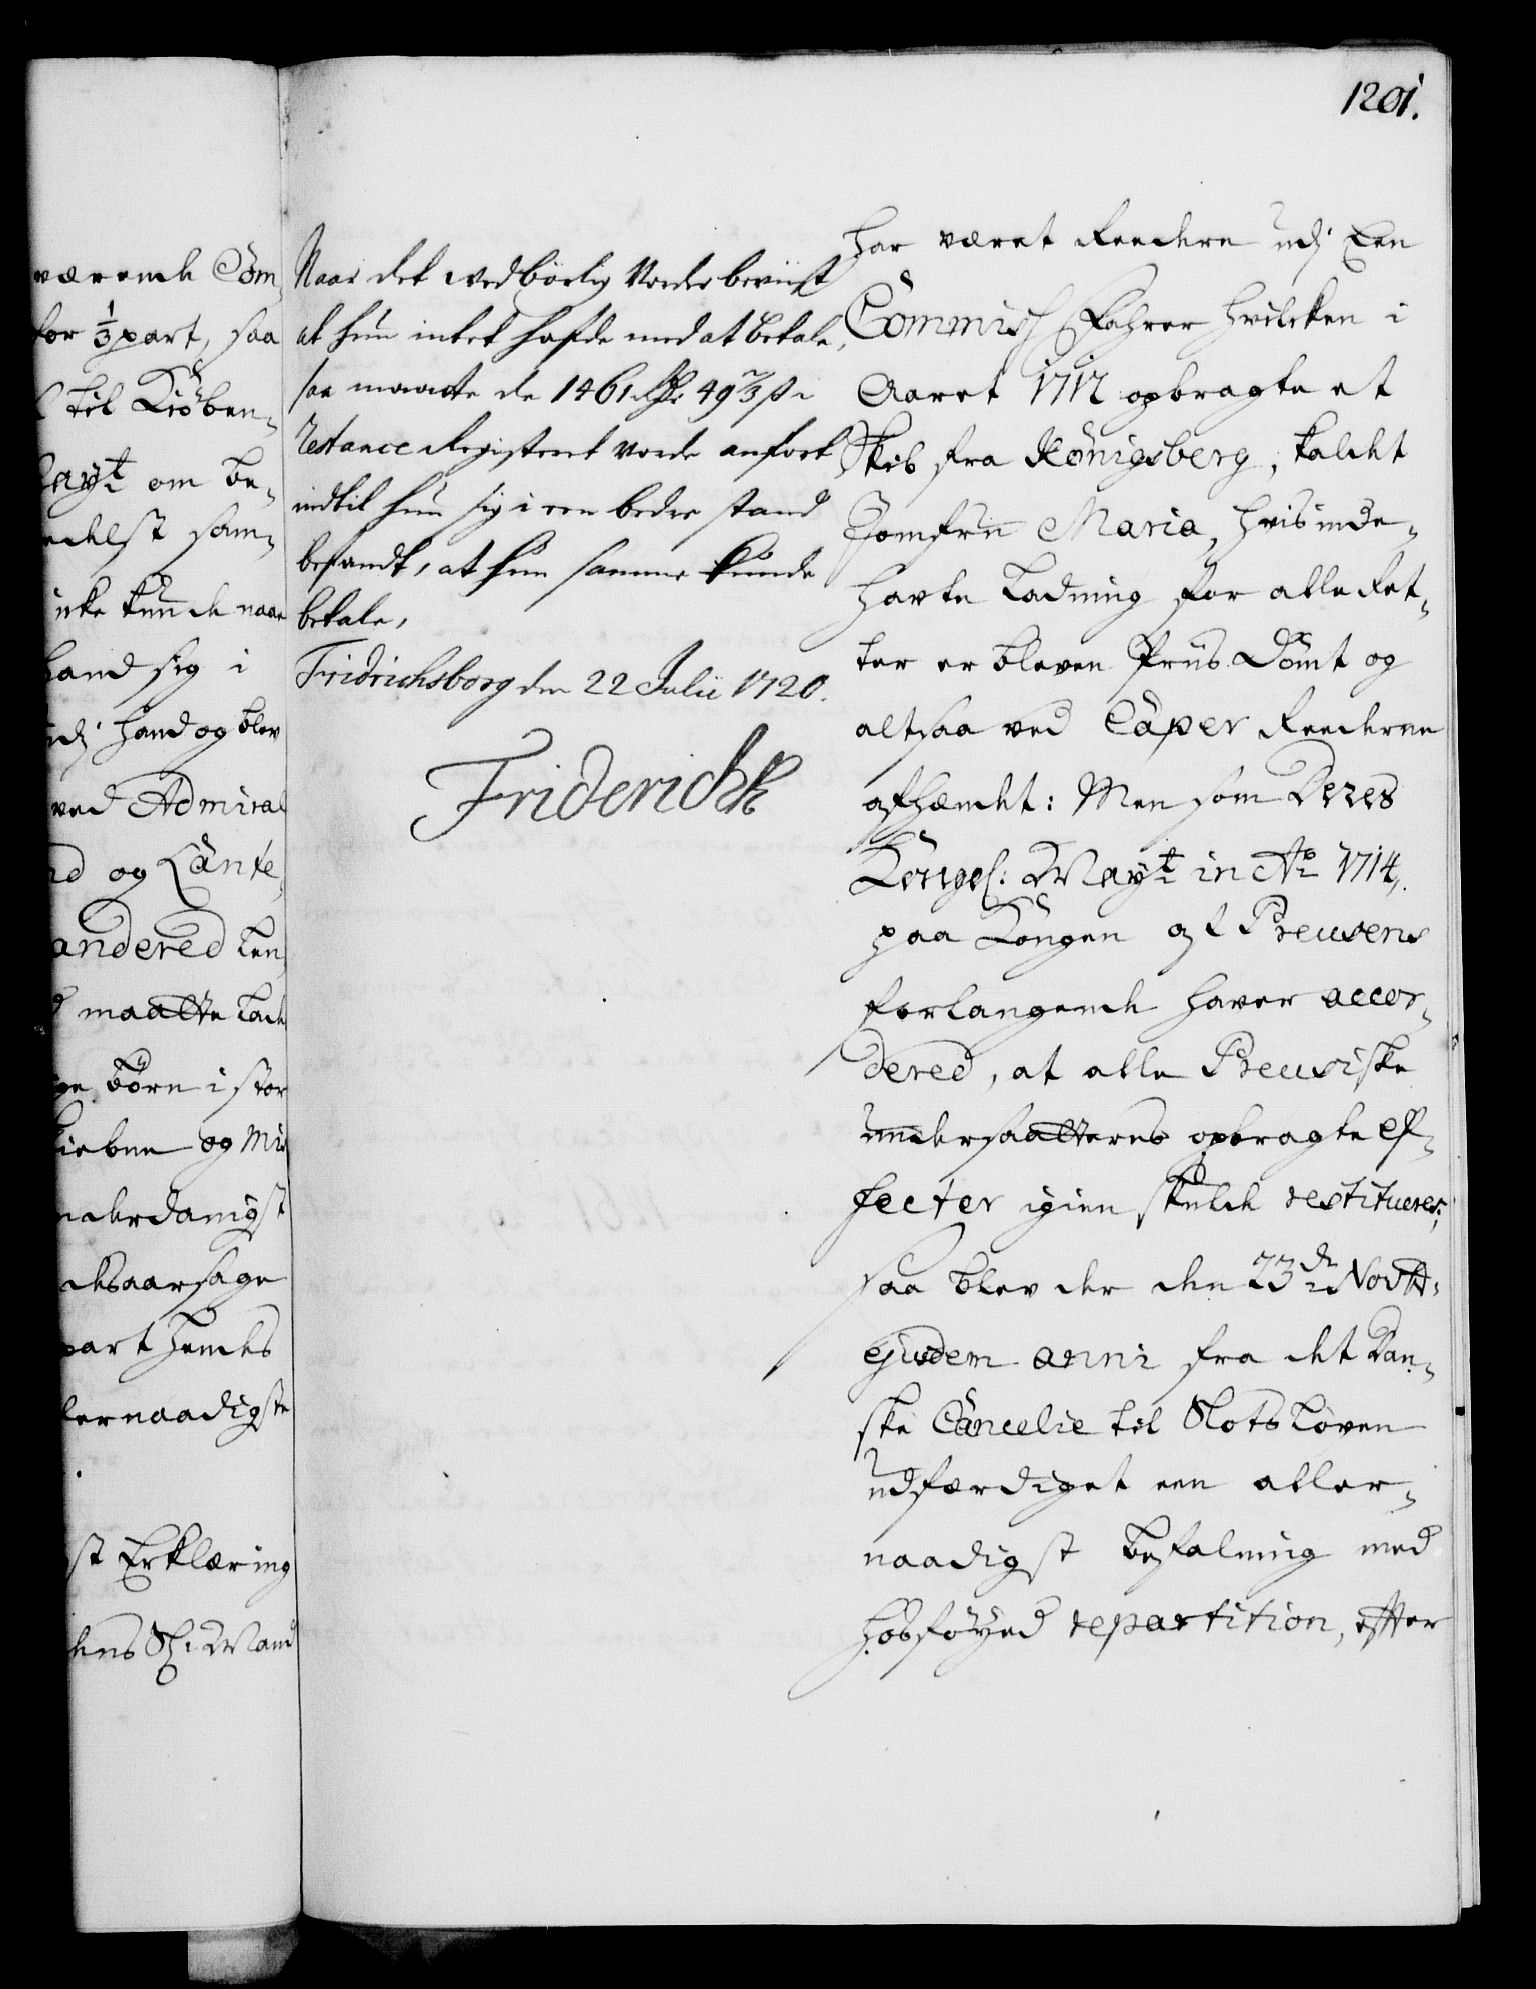 1201.
værende Com
for 1/3 part, saa
til Kiøben-
Mayt om be-
edelst sam-
icke kunde naar
hand sig i
udj hand og blev
ved Admiral
og Cante
andered ken
maatte lade
børn i stor
og Mid
underdanigst
desaarsage
part hendes
lernaadigste
st Erklæring
dens Sl: Mand
Naar det wedbørlig vorder beviist
at hun intet hafde med at betale,
saa maatte de 1461 Rdr 49 2/3 s i
Restance Registeret vorde anført
indtil hun sig i een bedre stand
befandt, at hun samme kunde
betale,
Fridrichsborg den 22 Julii 1720.
Friderich R
har været Reedere udj Een
Commiss Fahrer hvilcken i
Aaret 1712 opbragte et
Skib fra Königsberg, kaldet
Jomfru Maria, hvis inde-
havte Ladning for alle Ret-
ter er bleven Priis dømt og
altsaa ved Caper Reederne
afhændet: Men som Deres
Kongel: Mayt in Ao 1714,
paa Kongen af Preusens
forlangende haver accor-
dered, at alle Preusiske
undersaatteres opbragte ef-
fecter igien skulde restitueres;
saa blev der den 23de Novbr:
ejusdem anni fra det Dan-
ske Cancelie til Slotsloven
udfærdiget een aller-
naadigst befalning med
hosføyed repartition, efter